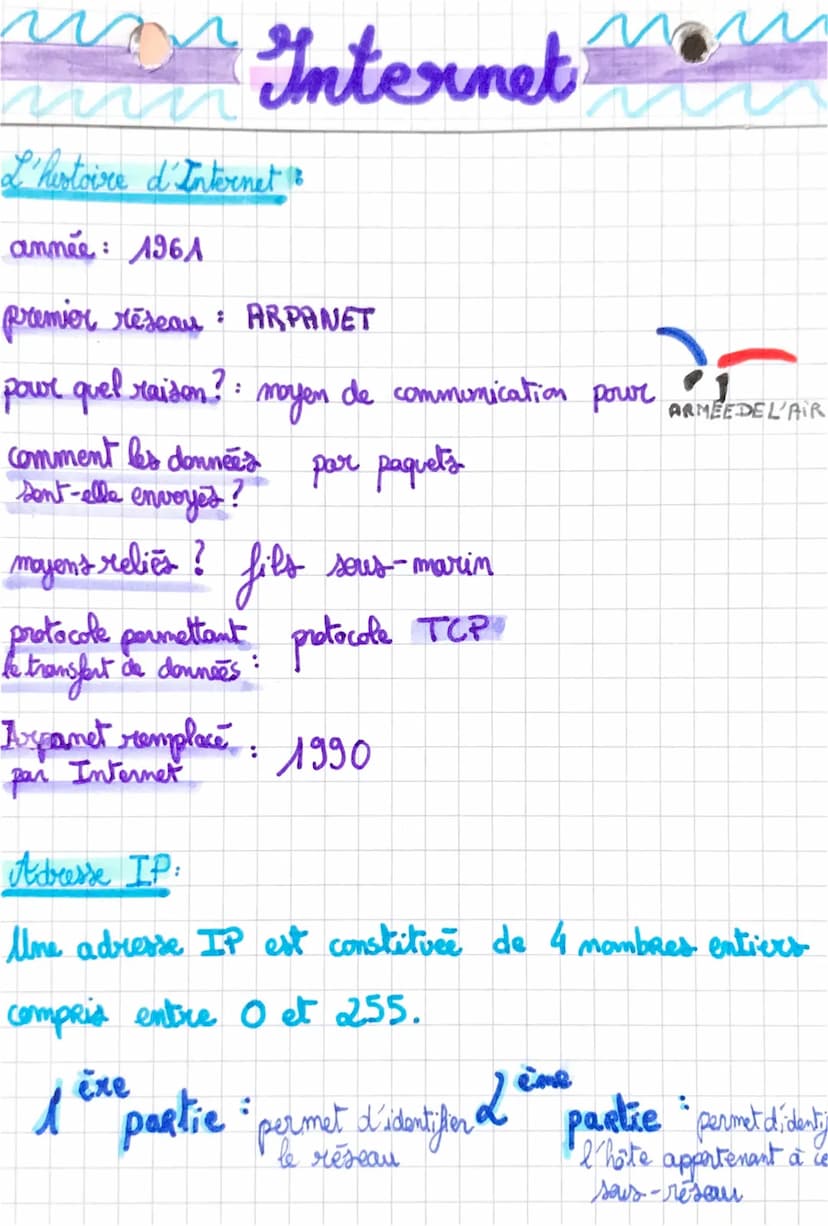 Internet
L'histoire d'Internet :
année : 1961
premier réseau : ARPANET
pour quel raison ? : moyen de communication pour
ARMÉE DE L'AIR
comment les données par paquets
sont-elle envoyés ?
moyens reliés ? fils sous-marin
protocole permettant protocole TCP
le transfert de données :
Arpanet remplacé : 1990
par Internet
Adresse IP :
Une adresse IP est constituée de 4 nombres entiers
compris entre 0 et 255.
1ère partie : permet d'identifier
le réseau
2ème partie : permet d'identif
l'hôte appartenant à ce
sous-réseau